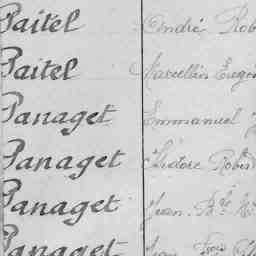 Paitel André Rob
Paitel Marcellin Eugèn
Panaget Emmanuel J
Panaget Isidore Robert
Panaget Jean Bte M
Panaget Jean Frois